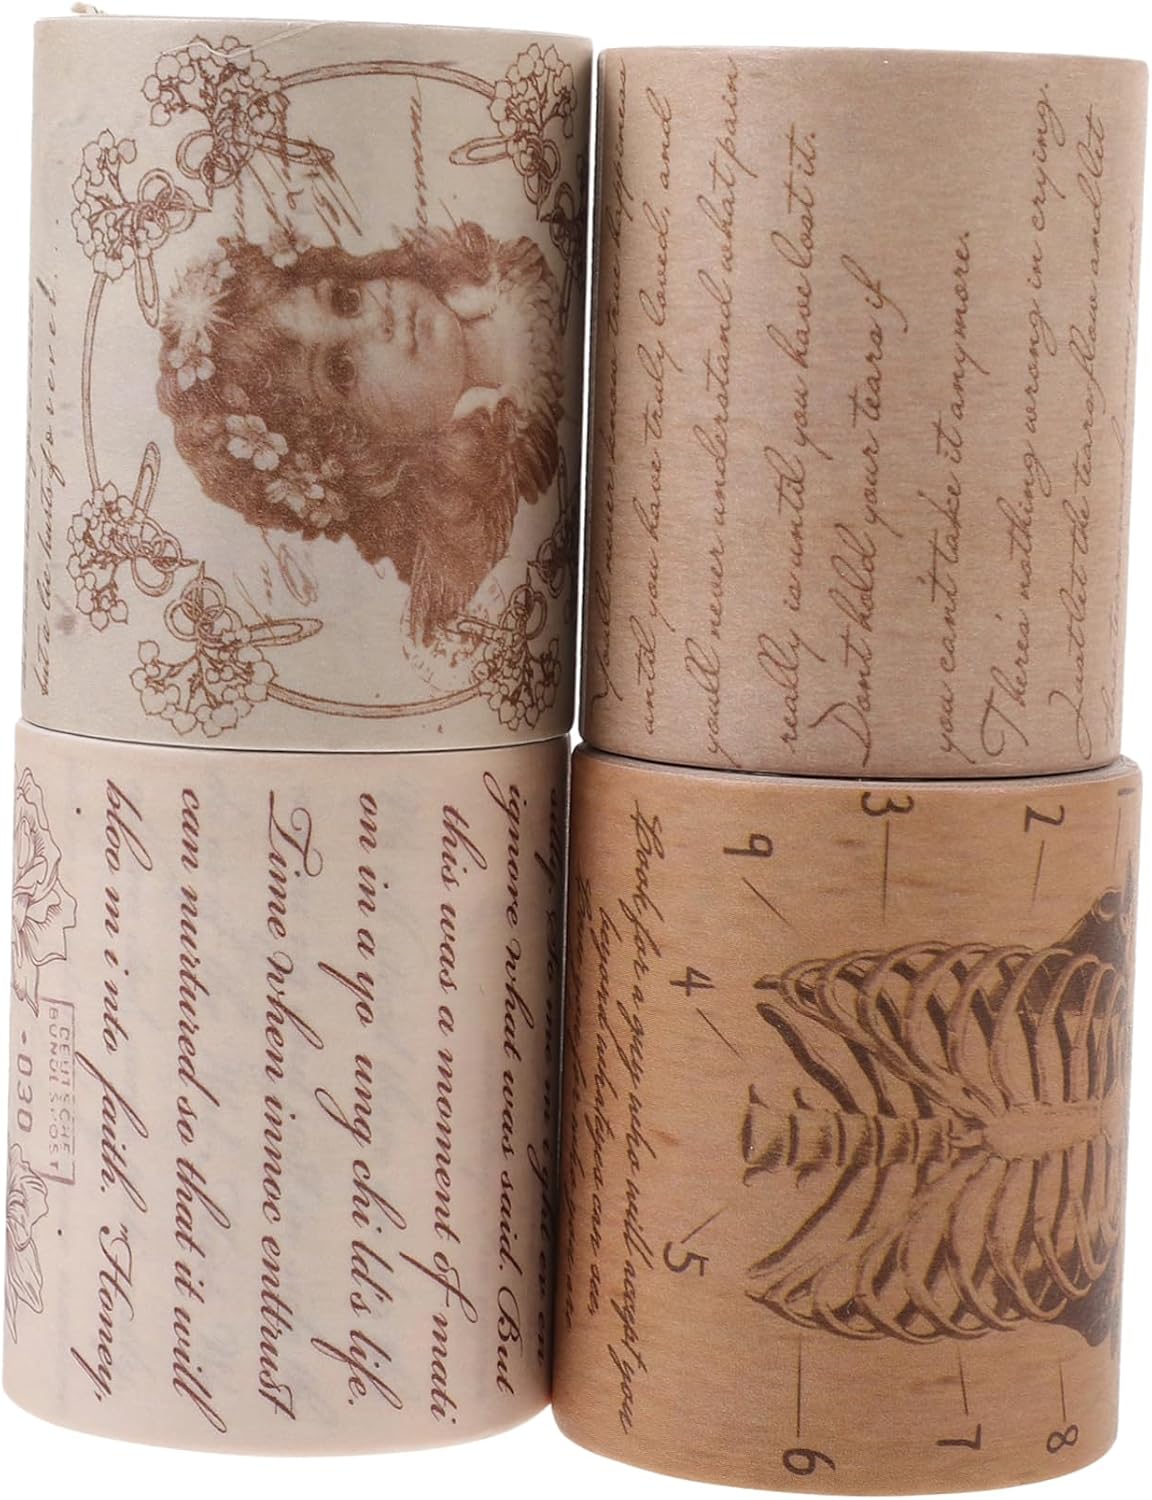 but a be hutsfo vvel.
until you have truly loved, and
you'll never understand what pain
really is until you have lost it.
Don't hold your tears if
you can't take it anymore.
There's nothing wrong in crying.
Just let the tears flow and let
ignore what was said. But
this was a moment of mati
on in a yo ung chi ld's life.
Time when innoc enttrust
can nurtured so that it will
bloo m i nto faith. "Homey,
CEUTSCHE
BUNDESPOST
•030
1
2
3
9
4
5
6
7
8
Look for a guy who will accept you
beyond what eyes can see,